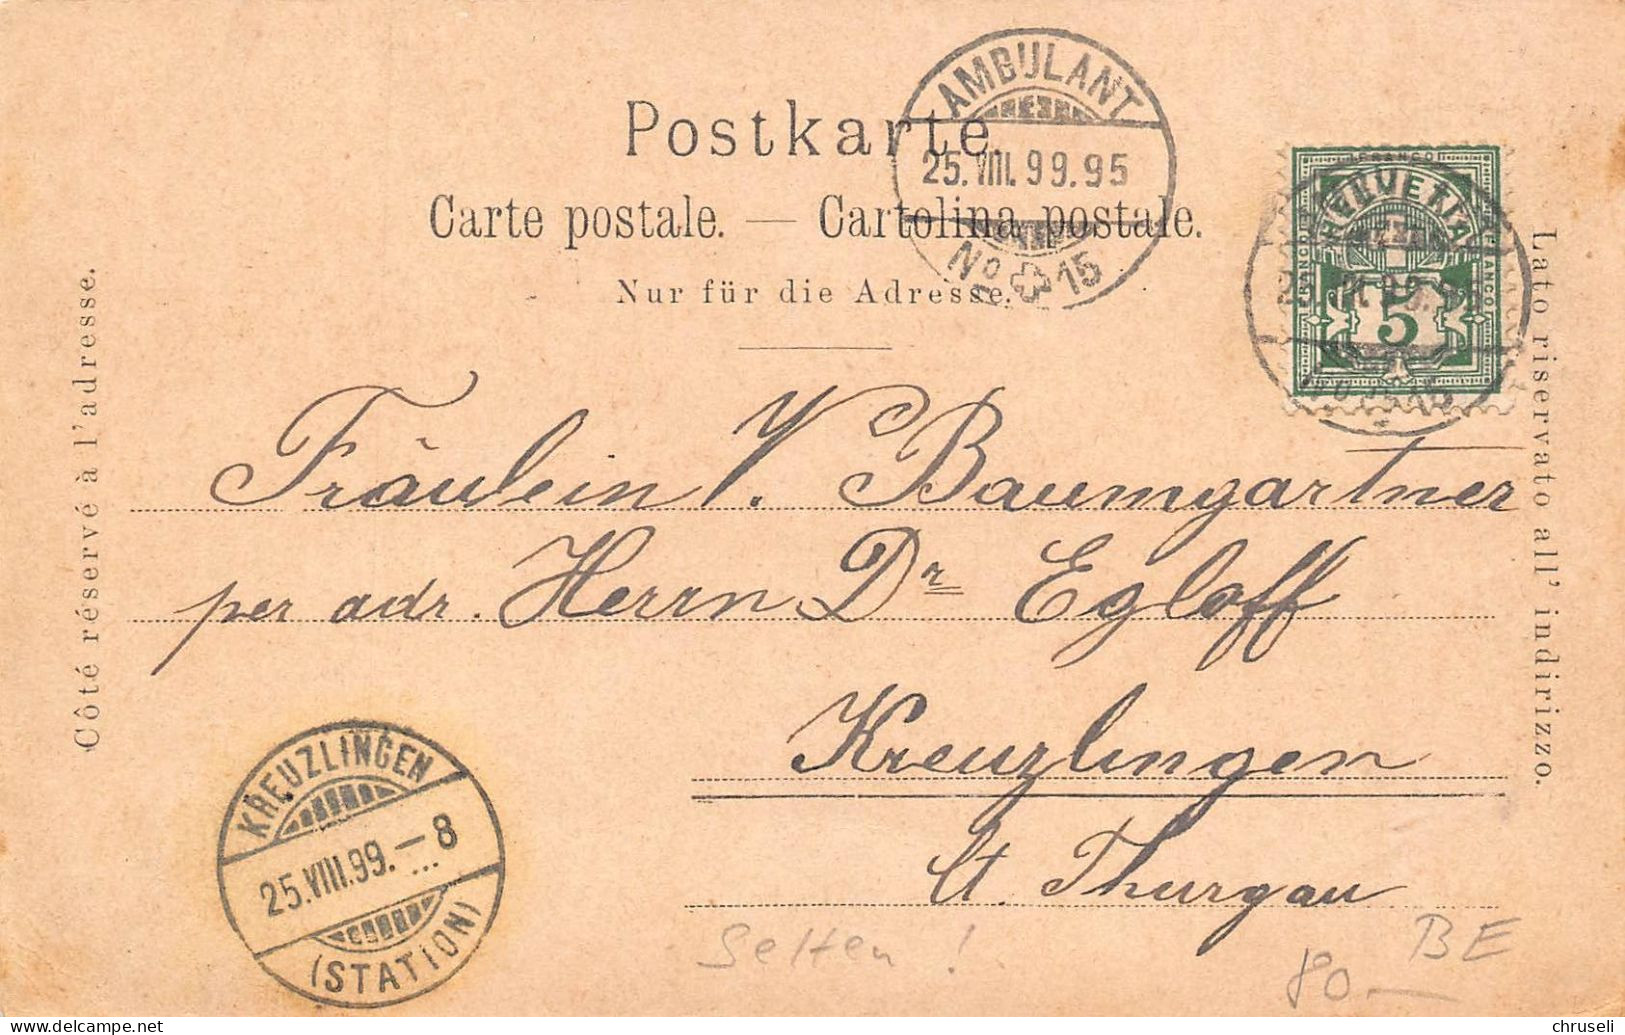 Postkarte.
Carte postale. — Cartolina postale.
Nur für die Adresse.
AMBULANT
25.VIII.99.95
No 15
HELVETIA
FRANCO
FRANCO
5
Côté réservé à l'adresse.
Lato riservato all' indirizzo.
Fräulein V. Baumgartner
per adr. Herrn Dr Egloff
Kreuzlingen
Ct. Thurgau
KREUZLINGEN
25.VIII.99.–8
(STATION)
Selten !
80.—
BE
delcampe.net
chruseli